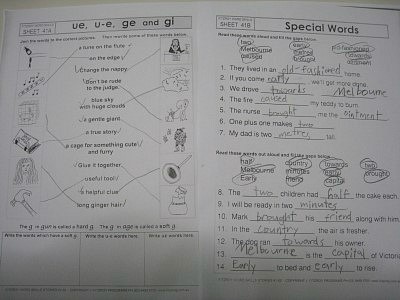 SHEET 41A
ue, u-e, ge and gi
Join the words to the correct pictures.
Then colour some of these words.
a tune on the flute
on the edge
change the nappy
don't be rude
to the judge
blue sky
with huge clouds
a gentle giant
a true story
a cage for something cute
and furry
Give it together
useful tool
a helpful clue
long ginger hair
The g in gun is called a hard g. The g in age is called a soft g.
Write the words which have a soft g.
Write the u-e words here.
Write ue words here.
SHEET 41B
Special Words
Read these words out aloud and fill the gaps below.
two
Melbourne
caused
early
metres
brought
old-fashioned
towards
ointment
1. They lived in an old-fashioned home.
2. If you come early we'll get more done.
3. We drove towards Melbourne
4. The fire caused my teddy to burn.
5. The nurse brought me the ointment
6. One plus one makes two
7. My dad is two metres tall.
Read these words out aloud and fill the gaps below.
half
Melbourne
Early
country
minutes
friend
towards
early
capital
two
brought
8. The two children had half the cake each.
9. I will be ready in two minutes
10. Mark brought his friend along with him
11. In the country the air is fresher.
12. The dog ran towards his owner.
13. Melbourne is the capital of Victoria
14. Early to bed and early to rise.